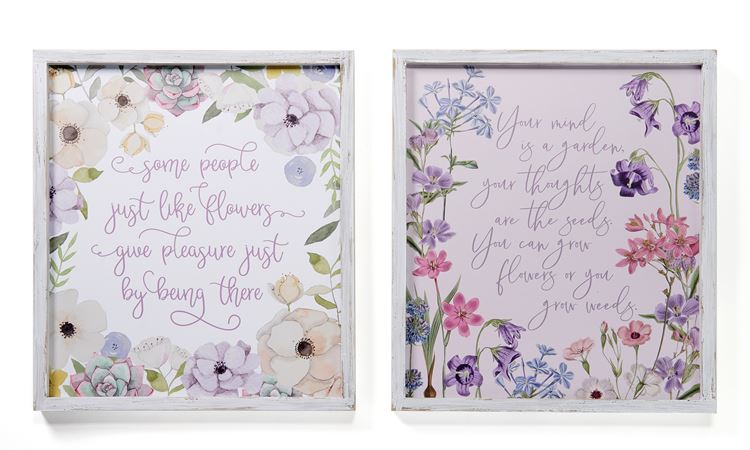 some people
just like flowers
give pleasure just
by being there
Your mind
is a garden,
your thoughts
are the seeds.
You can grow
flowers or you
grow weeds.